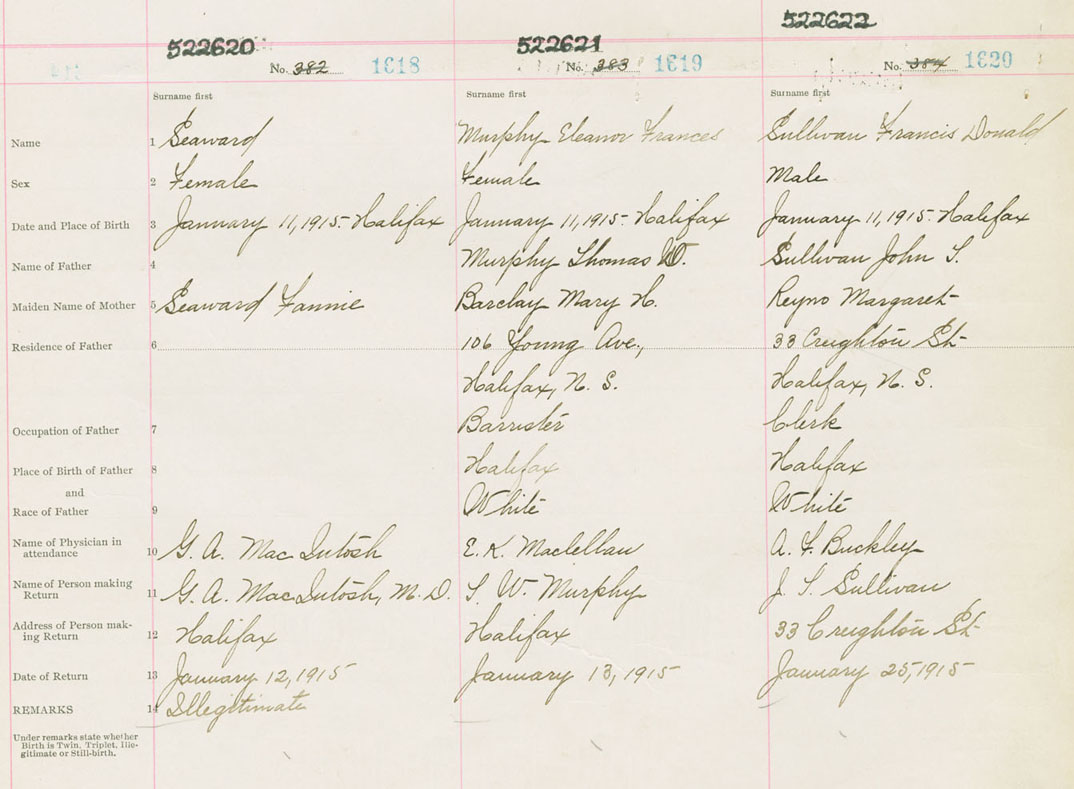 522620 522621 522622
No. 382 1618 No. 383 1619 No. 384 1620
Surname first Surname first Surname first
Name 1 Seaward Murphy Eleanor Frances Sullivan Francis Donald
Sex 2 Female Female Male
Date and Place of Birth 3 January 11, 1915- Halifax January 11, 1915- Halifax January 11, 1915- Halifax
Name of Father 4 Murphy Thomas W. Sullivan John T.
Maiden Name of Mother 5 Seaward Fannie Barclay Mary H. Reyno Margaret
Residence of Father 6 106 Young Ave., 33 Creighton St
Halifax, N. S. Halifax, N. S.
Occupation of Father 7 Barrister Clerk
Place of Birth of Father 8 Halifax Halifax
and
Race of Father 9 White White
Name of Physician in
attendance 10 G. A. MacIntosh E. K. Maclellan A. F. Buckley
Name of Person making
Return 11 G. A. MacIntosh, M. D. T. W. Murphy J. T. Sullivan
Address of Person mak-
ing Return 12 Halifax Halifax 33 Creighton St
Date of Return 13 January 12, 1915 January 13, 1915 January 25, 1915
REMARKS 14 Illegitimate
Under remarks state whether
Birth is Twin, Triplet, Ille-
gitimate or Still-birth.